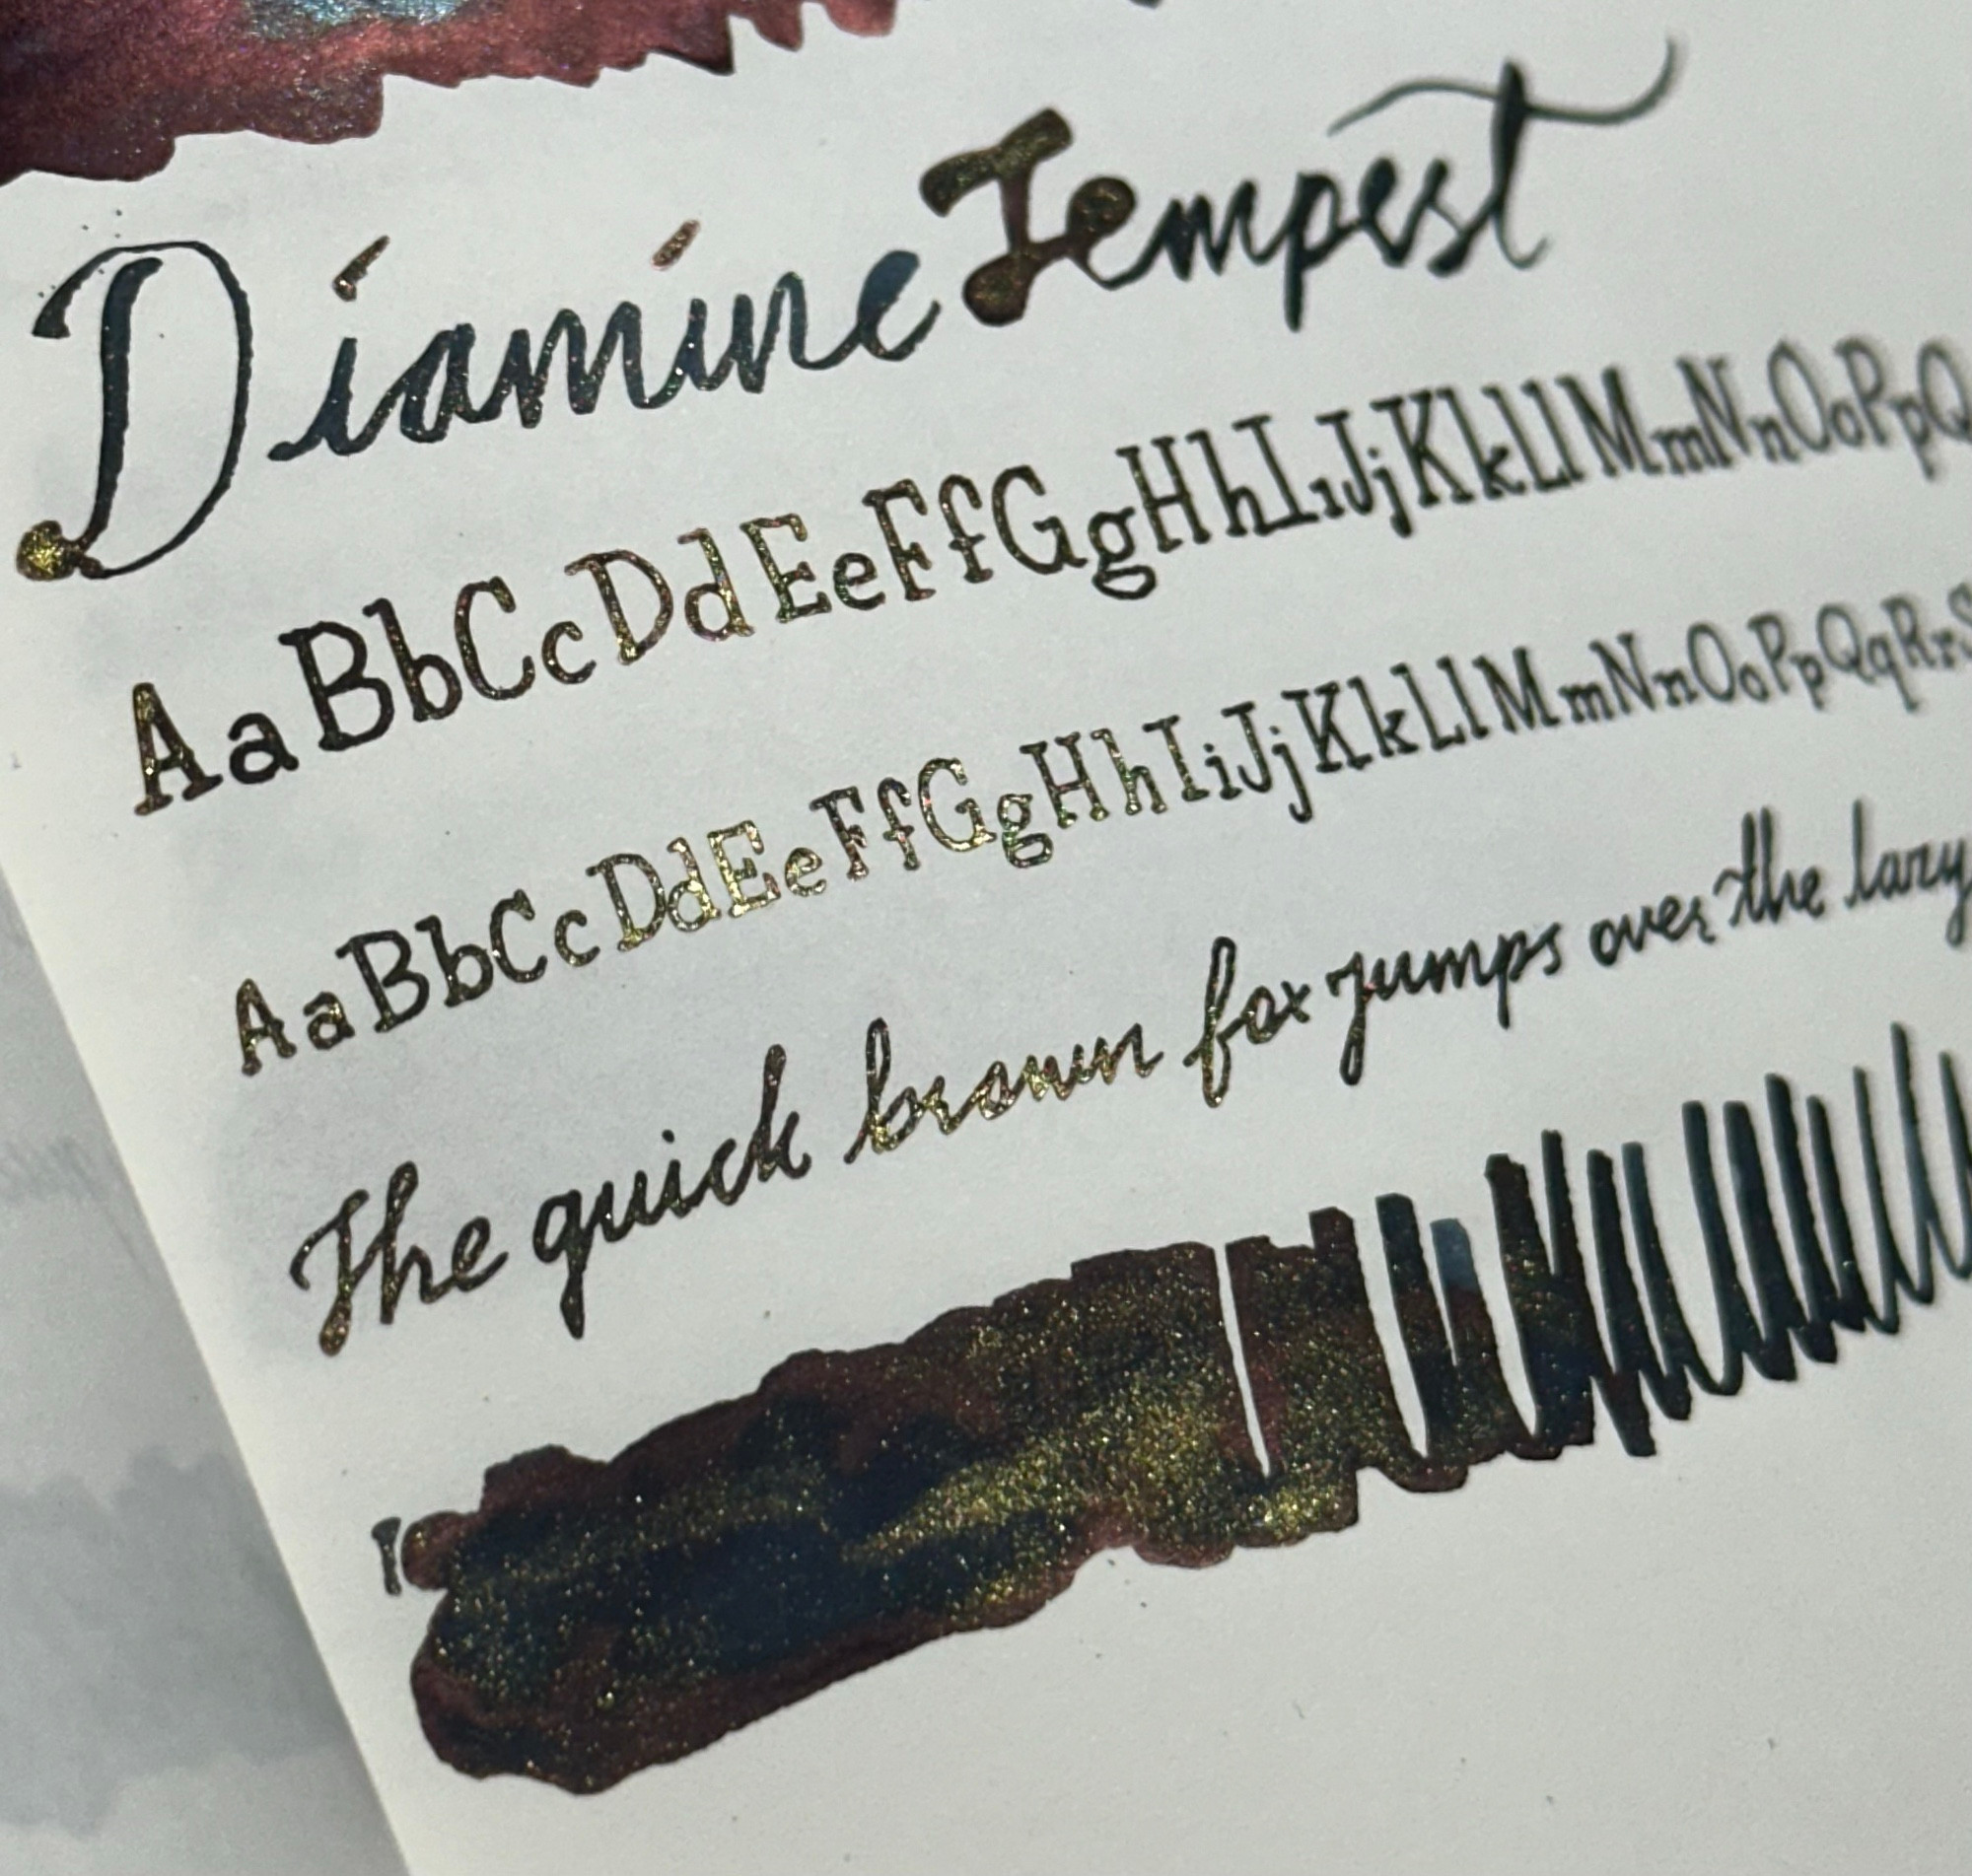 Diamine Tempest
AaBbCcDdEeFfGgHhIiJjKkLlMmNnOoPpQ
AaBbCcDdEeFfGgHhIiJjKkLlMmNnOoPpQqRrS
The quick brown fox jumps over the lazy